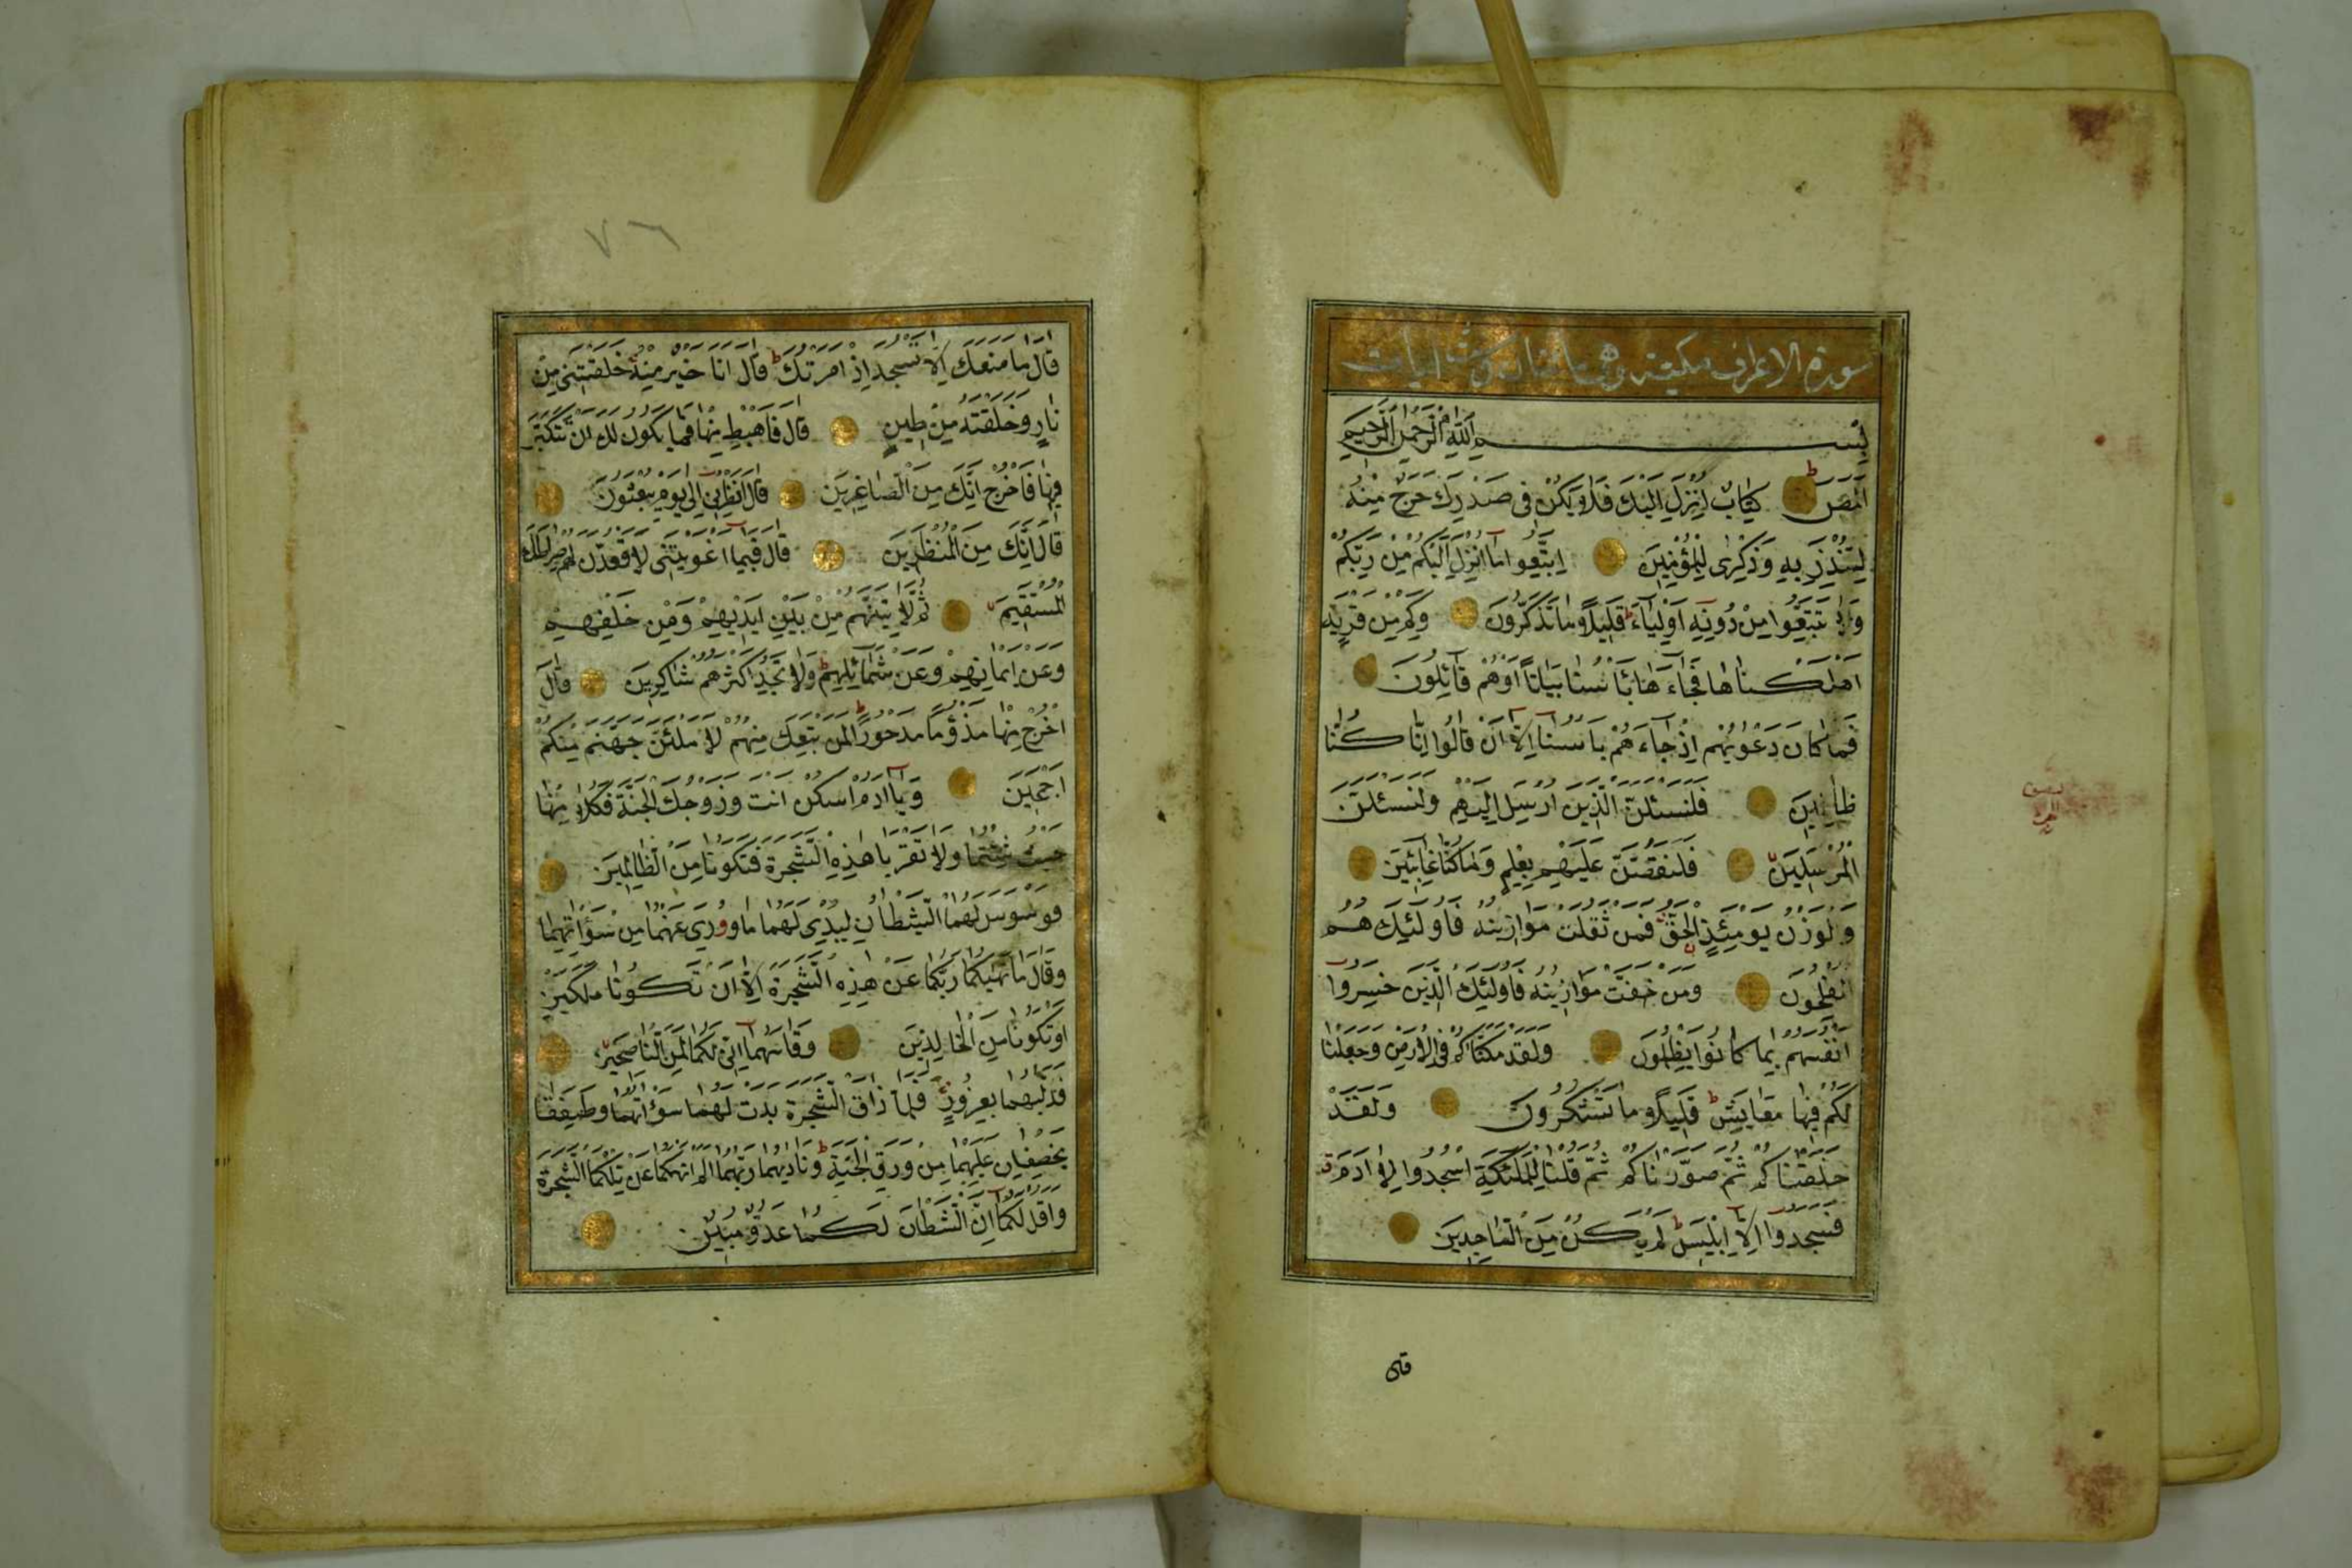 سورة الاعراف مكية وهى مائتان وست ايات
بِسْمِ اللهِ الرَّحْمٰنِ الرَّحِيمِ
الٓمٓصٓ كِتَابٌ اُنْزِلَ اِلَيْكَ فَلَا يَكُنْ فِى صَدْرِكَ حَرَجٌ مِنْهُ
لِتُنْذِرَ بِهِ وَذِكْرٰى لِلْمُؤْمِنِينَ اِتَّبِعُوا مَٓا اُنْزِلَ اِلَيْكُمْ مِنْ رَبِّكُمْ
وَلَا تَتَّبِعُوا مِنْ دُونِهِٓ اَوْلِيَٓاءَ قَلِيلًا مَا تَذَكَّرُونَ وَكَمْ مِنْ قَرْيَةٍ
اَهْلَكْنَاهَا فَجَٓاءَهَا بَأْسُنَا بَيَاتًا اَوْهُمْ قَٓائِلُونَ
فَمَا كَانَ دَعْوٰيهُمْ اِذْ جَٓاءَهُمْ بَأْسُنَٓا اِلَّٓا اَنْ قَالُوا اِنَّا كُنَّا
ظَالِمِينَ فَلَنَسْئَلَنَّ الَّذِينَ اُرْسِلَ اِلَيْهِمْ وَلَنَسْئَلَنَّ
الْمُرْسَلِينَ فَلَنَقُصَّنَّ عَلَيْهِمْ بِعِلْمٍ وَمَا كُنَّا غَٓائِبِينَ
وَالْوَزْنُ يَوْمَئِذٍ الْحَقُّ فَمَنْ ثَقُلَتْ مَوَازِينُهُ فَاُولٰٓئِكَ هُمُ
الْمُفْلِحُونَ وَمَنْ خَفَّتْ مَوَازِينُهُ فَاُولٰٓئِكَ الَّذِينَ خَسِرُوا
اَنْفُسَهُمْ بِمَا كَانُوا بِاٰيَاتِنَا يَظْلِمُونَ وَلَقَدْ مَكَّنَّاكُمْ فِى الْاَرْضِ وَجَعَلْنَا
لَكُمْ فِيهَا مَعَايِشَ قَلِيلًا مَا تَشْكُرُونَ وَلَقَدْ
خَلَقْنَاكُمْ ثُمَّ صَوَّرْنَاكُمْ ثُمَّ قُلْنَا لِلْمَلٰٓئِكَةِ اسْجُدُوا لِاٰدَمَ
فَسَجَدُٓوا اِلَّٓا اِبْلِيسَ لَمْ يَكُنْ مِنَ السَّاجِدِينَ
قال
٧٦
قَالَ مَا مَنَعَكَ اَلَّا تَسْجُدَ اِذْ اَمَرْتُكَ قَالَ اَنَا خَيْرٌ مِنْهُ خَلَقْتَنِى مِنْ
نَارٍ وَخَلَقْتَهُ مِنْ طِينٍ قَالَ فَاهْبِطْ مِنْهَا فَمَا يَكُونُ لَكَ اَنْ تَتَكَبَّرَ
فِيهَا فَاخْرُجْ اِنَّكَ مِنَ الصَّاغِرِينَ قَالَ اَنْظِرْنِى اِلٰى يَوْمِ يُبْعَثُونَ
قَالَ اِنَّكَ مِنَ الْمُنْظَرِينَ قَالَ فَبِمَٓا اَغْوَيْتَنِى لَاَقْعُدَنَّ لَهُمْ صِرَاطَكَ
الْمُسْتَقِيمَ ثُمَّ لَاٰتِيَنَّهُمْ مِنْ بَيْنِ اَيْدِيهِمْ وَمِنْ خَلْفِهِمْ
وَعَنْ اَيْمَانِهِمْ وَعَنْ شَمَٓائِلِهِمْ وَلَا تَجِدُ اَكْثَرَهُمْ شَاكِرِينَ قَالَ
اخْرُجْ مِنْهَا مَذْؤُمًا مَدْحُورًا لَمَنْ تَبِعَكَ مِنْهُمْ لَاَمْلَئَنَّ جَهَنَّمَ مِنْكُمْ
اَجْمَعِينَ وَيَٓا اٰدَمُ اسْكُنْ اَنْتَ وَزَوْجُكَ الْجَنَّةَ فَكُلَا مِنْهَا
حَيْثُ شِئْتُمَا وَلَا تَقْرَبَا هٰذِهِ الشَّجَرَةَ فَتَكُونَا مِنَ الظَّالِمِينَ
فَوَسْوَسَ لَهُمَا الشَّيْطَانُ لِيُبْدِىَ لَهُمَا مَا وُورِىَ عَنْهُمَا مِنْ سَوْاٰتِهِمَا
وَقَالَ مَا نَهٰيكُمَا رَبُّكُمَا عَنْ هٰذِهِ الشَّجَرَةِ اِلَّٓا اَنْ تَكُونَا مَلَكَيْنِ
اَوْ تَكُونَا مِنَ الْخَالِدِينَ وَقَاسَمَهُمَٓا اِنِّى لَكُمَا لَمِنَ النَّاصِحِينَ
فَدَلّٰيهُمَا بِغُرُورٍ فَلَمَّا ذَاقَا الشَّجَرَةَ بَدَتْ لَهُمَا سَوْاٰتُهُمَا وَطَفِقَا
يَخْصِفَانِ عَلَيْهِمَا مِنْ وَرَقِ الْجَنَّةِ وَنَادٰيهُمَا رَبُّهُمَٓا اَلَمْ اَنْهَكُمَا عَنْ تِلْكُمَا الشَّجَرَةِ
وَاَقُلْ لَكُمَٓا اِنَّ الشَّيْطَانَ لَكُمَا عَدُوٌّ مُبِينٌ